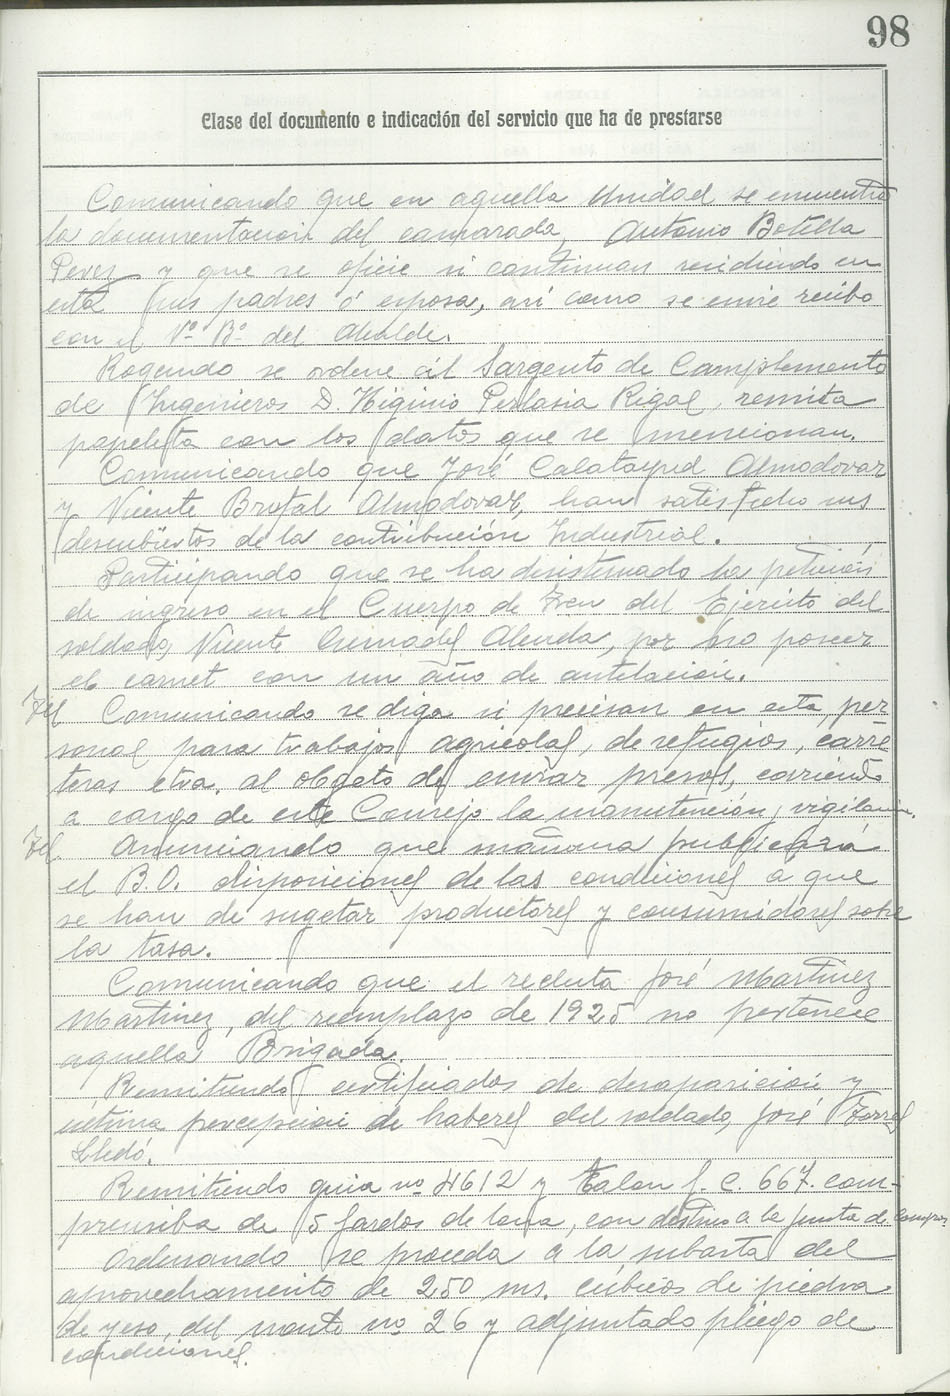 98
Clase del documento e indicación del servicio que ha de prestarse
Comunicando que en aquella Unidad se encuentra
la documentación del camarada, Antonio Botella
Perez y que se oficie si continuan residiendo en
esta sus padres ó esposa, asi como se envie recibo
con el Vº Bº del Alcalde.
Rogando se ordene al Sargento de Complemento
de Ingenieros D. Higinio Perlasia Rigal, remita
papeleta con los datos que se mencionan.
Comunicando que José Calatayud Almodovar
y Vicente Brotal Almodovar, han satisfecho sus
descubiertos de la contribución Industrial.
Participando que se ha desistimado la petición
de ingreso en el Cuerpo de Tren del Ejercito del
soldado, Vicente Cremades Alenda, por no poseer
el carnet con un año de antelación.
Comunicando se diga si precisan en esta, per
sonal para trabajos agricolas, de refugios, carre
teras etva. al obgeto de enviar presos, corriendo
a cargo de este Consejo la manutención, vigilancia.
Anunciando que mañana publicará
el B.O. disposiciones de las condiciones a que
se han de sugetar productores y consumidores sobre
la tasa.
Comunicando que el recluta José Martinez
Martinez, del reemplazo de 1925 no pertenece
aquella Brigada.
Remitiendo certificados de desaparición y
última percepción de haberes del soldado, José Torres
Lledó.
Remitiendo guia nº 4612 y Talon f. c. 667. com-
prensiba de 5 fardos de lana, con destino a la Junta de Compras
Ordenando se proceda a la subasta del
aprovechamiento de 250 ms. cúbicos de piedra
de yeso, del monte nº 26 y adjuntado pliego de
condiciones.